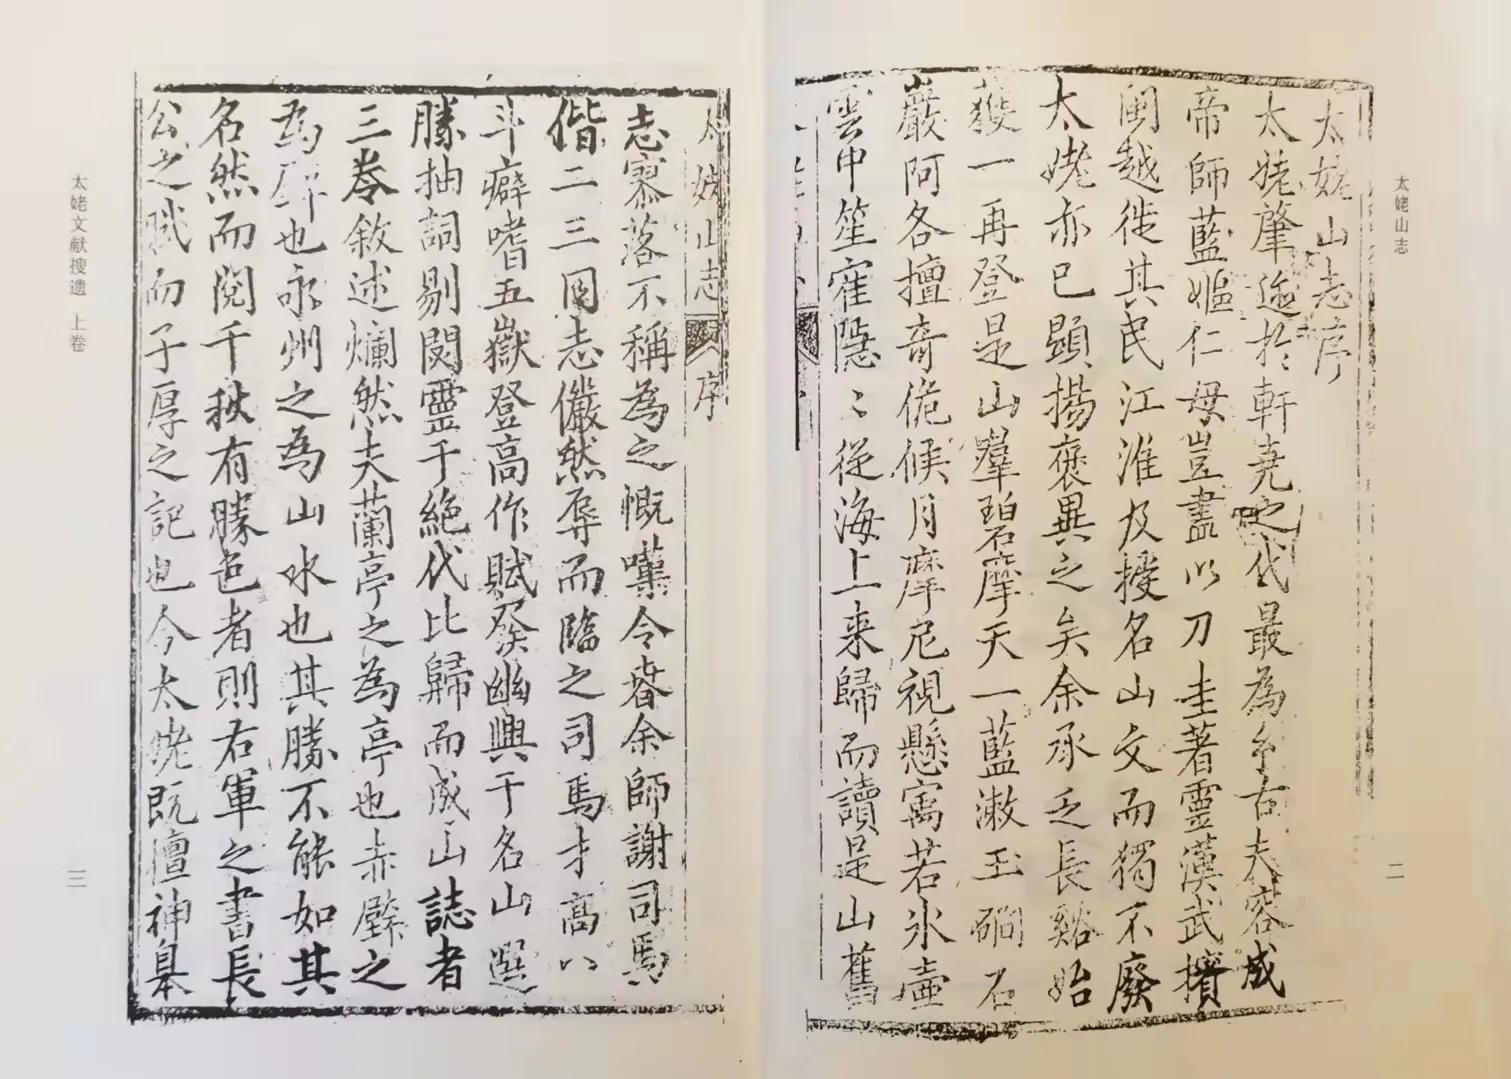 太姥山志
二
太姥山志序
太姥肇迹於軒堯之代最為千古夫容成
帝師藍嫗仁母豈盡以刀圭著靈漢武擯
閩越徙其民江淮及授名山文而獨不廢
太姥亦已顯揚褒異之矣余承乏長谿始
獲一再登是山羣碧摩天一藍漱玉磵石
巖阿各擅奇佹候月摩尼視懸寓若氷壺
雲中笙寉隱〻從海上来歸而讀是山舊
太姥山志 序
志寥落不稱為之慨嘆令眘余師謝司馬
偕二三同志儼然辱而臨之司馬才高八
斗癖嗜五嶽登高作賦發幽興于名山選
勝抽詞剔閟靈于絶代比歸而成山誌者
三卷敘述爛然夫蘭亭之為亭也赤壁之
為壁也永州之為山水也其勝不能如其
名然而閱千秋有勝色者則右軍之書長
公之賦而子厚之記也今太姥既擅神皋
太姥文献搜遗 上卷
三